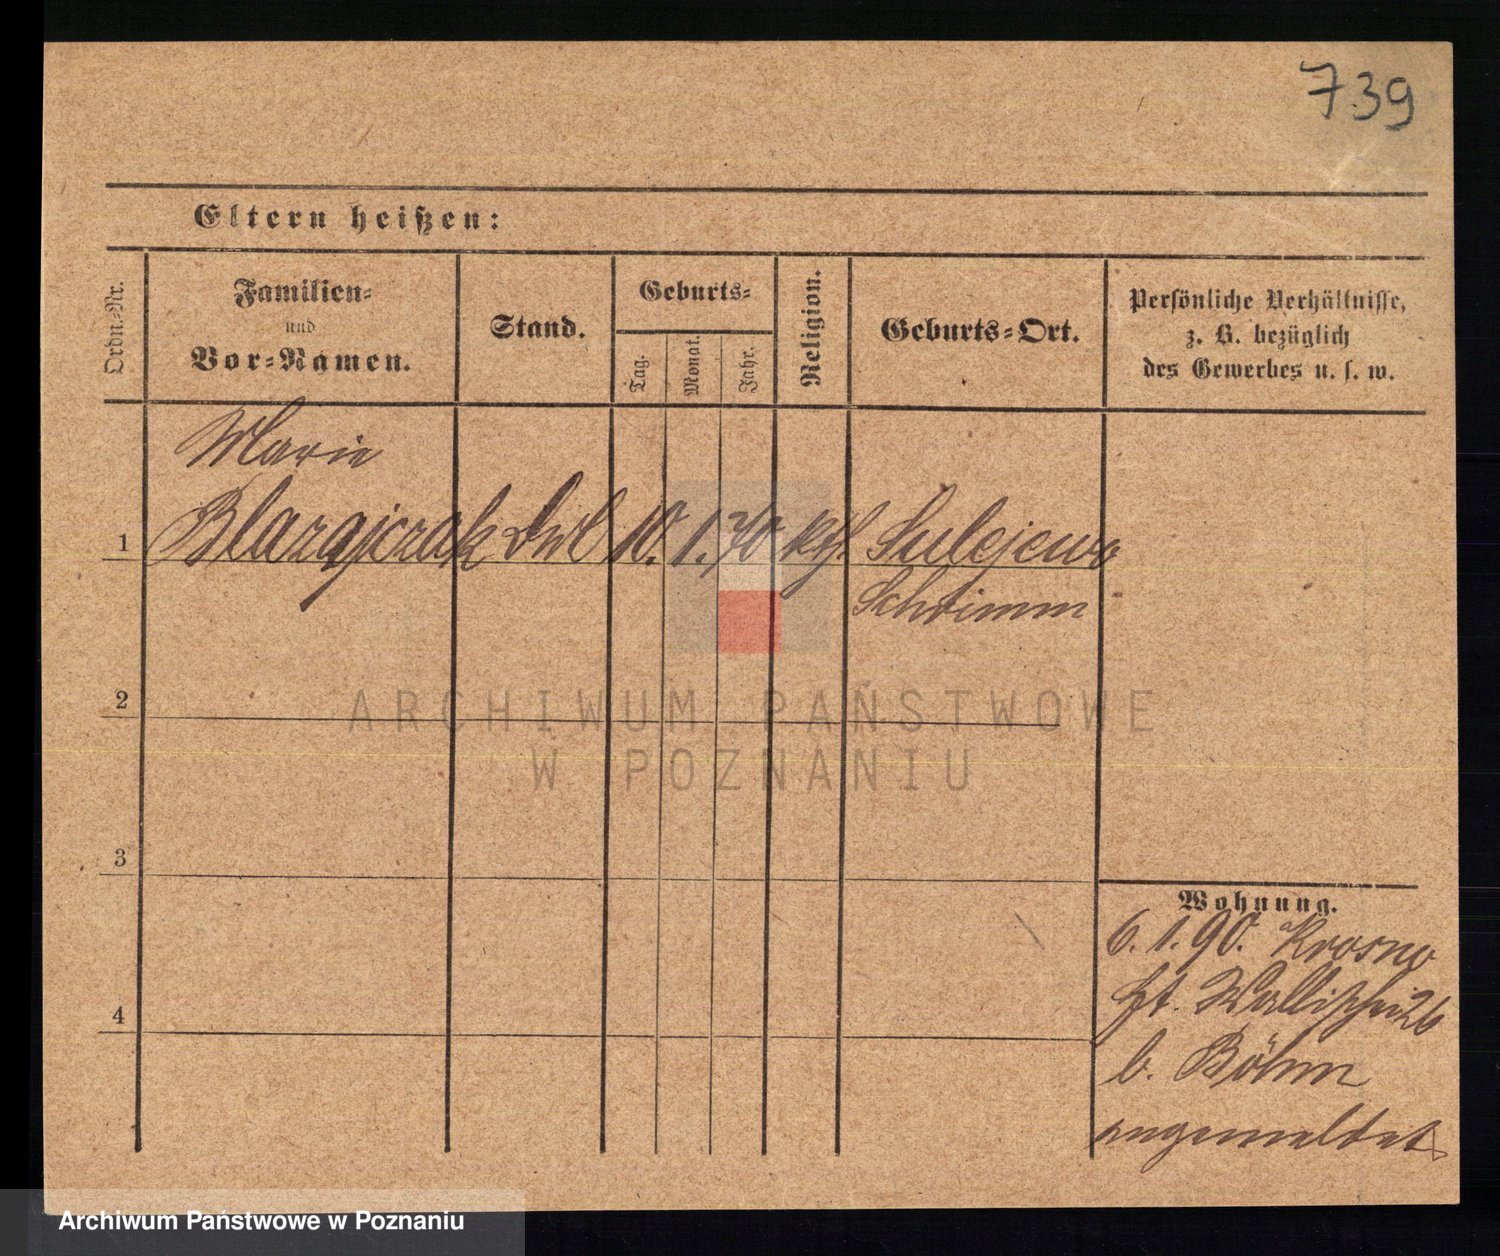 739
Eltern heißen:
Ordn.-Nr.
Familien-
und
Vor-Namen.
Stand.
Geburts-
Tag.
Monat.
Jahr.
Religion.
Geburts-Ort.
Persönliche Verhältnisse,
z. B. bezüglich
des Gewerbes u. s. w.
Marie
1 Blazajczak 10. 1. 70 Ktf. Sulejewo
Schrimm
2
3
4
Wohnung.
6. 1. 90. Krosno
Wallischei 26
b. Böhm
angemeldet
ARCHIWUM PAŃSTWOWE
W POZNANIU
Archiwum Państwowe w Poznaniu